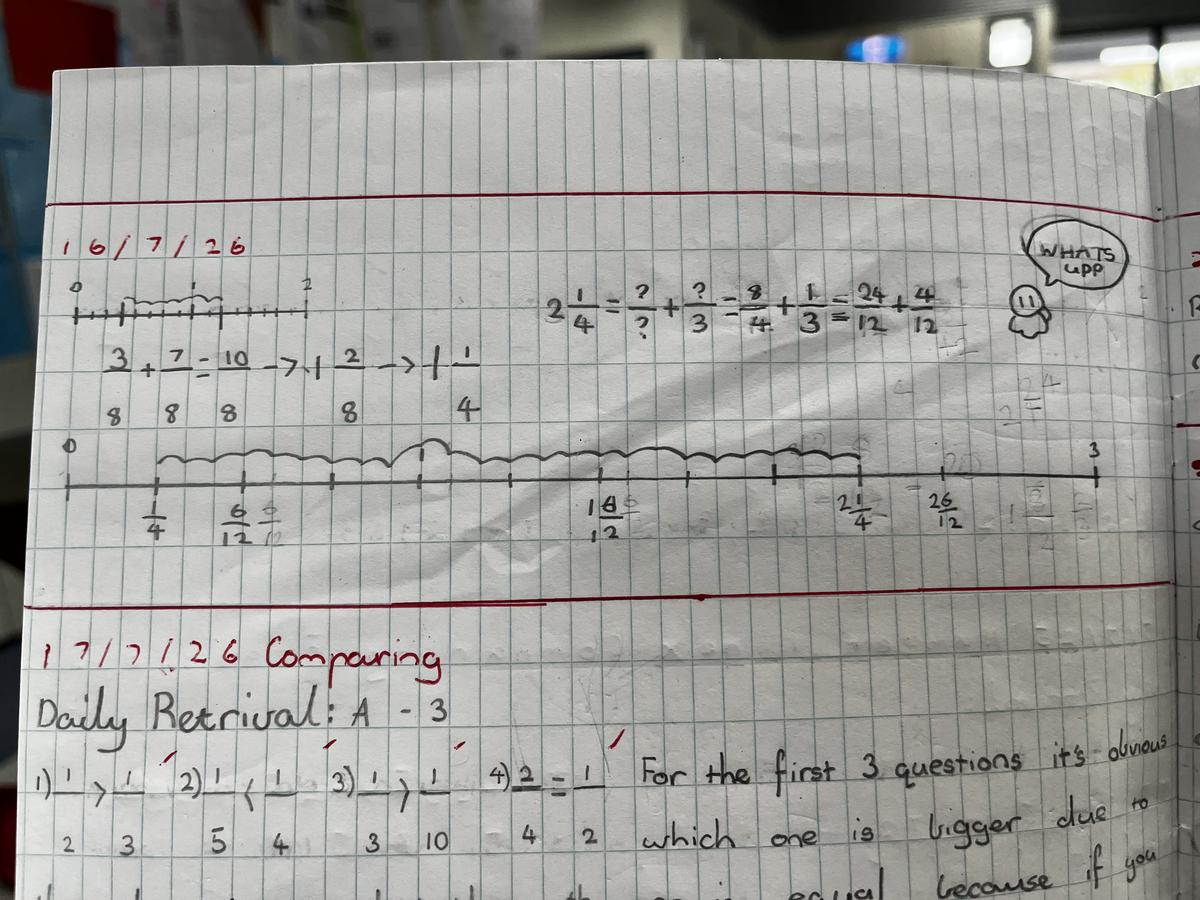 16/7/26
WHATS
upp
0 1 2
2 1/4 = ?/? + ?/3 = 8/4 + 1/3 = 24/12 + 4/12
3/8 + 7/8 = 10/8 -> 1 2/8 -> 1 1/4
0 3
1/4 6/12 18/12 2 1/4 26/12
17/7/26 Comparing
Daily Retrival: A - 3
1) 1/2 > 1/3 2) 1/5 < 1/4 3) 1/3 > 1/10 4) 2/4 = 1/2 For the first 3 questions it's obvious
which one is bigger due to
equal because if you